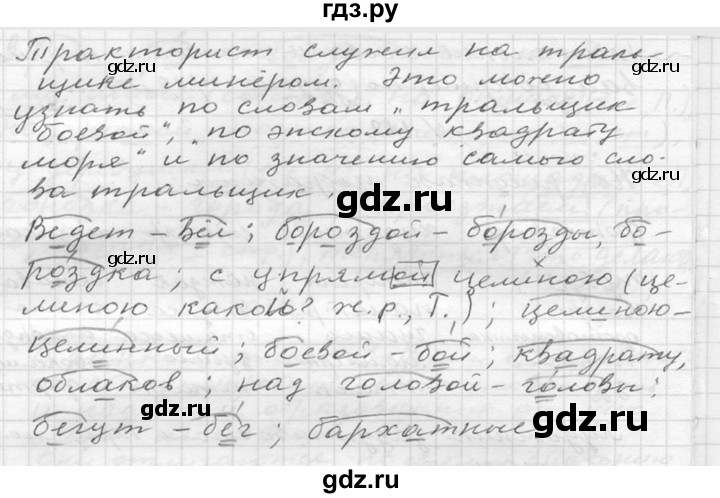 гдз.ру
Тракторист служил на траль-
щике минёром. Это можно
узнать по словам „тральщик
боевой", „по энскому квадрату
моря" и по значению самого сло-
ва тральщик.
Ведет – вёл; бороздой – борозды, бо-
роздка; с упрямой целиною (це-
линою какой? ж.р., Т.); целиною –
целинный; боевой – бой; квадрату,
облаков; над головой – головы;
бегут – бег; бархатные
gdz.ru
gdz.ru
gdz.ru
gdz.ru
gdz.ru
gdz.ru
gdz.ru
gdz.ru
gdz.ru
gdz.ru